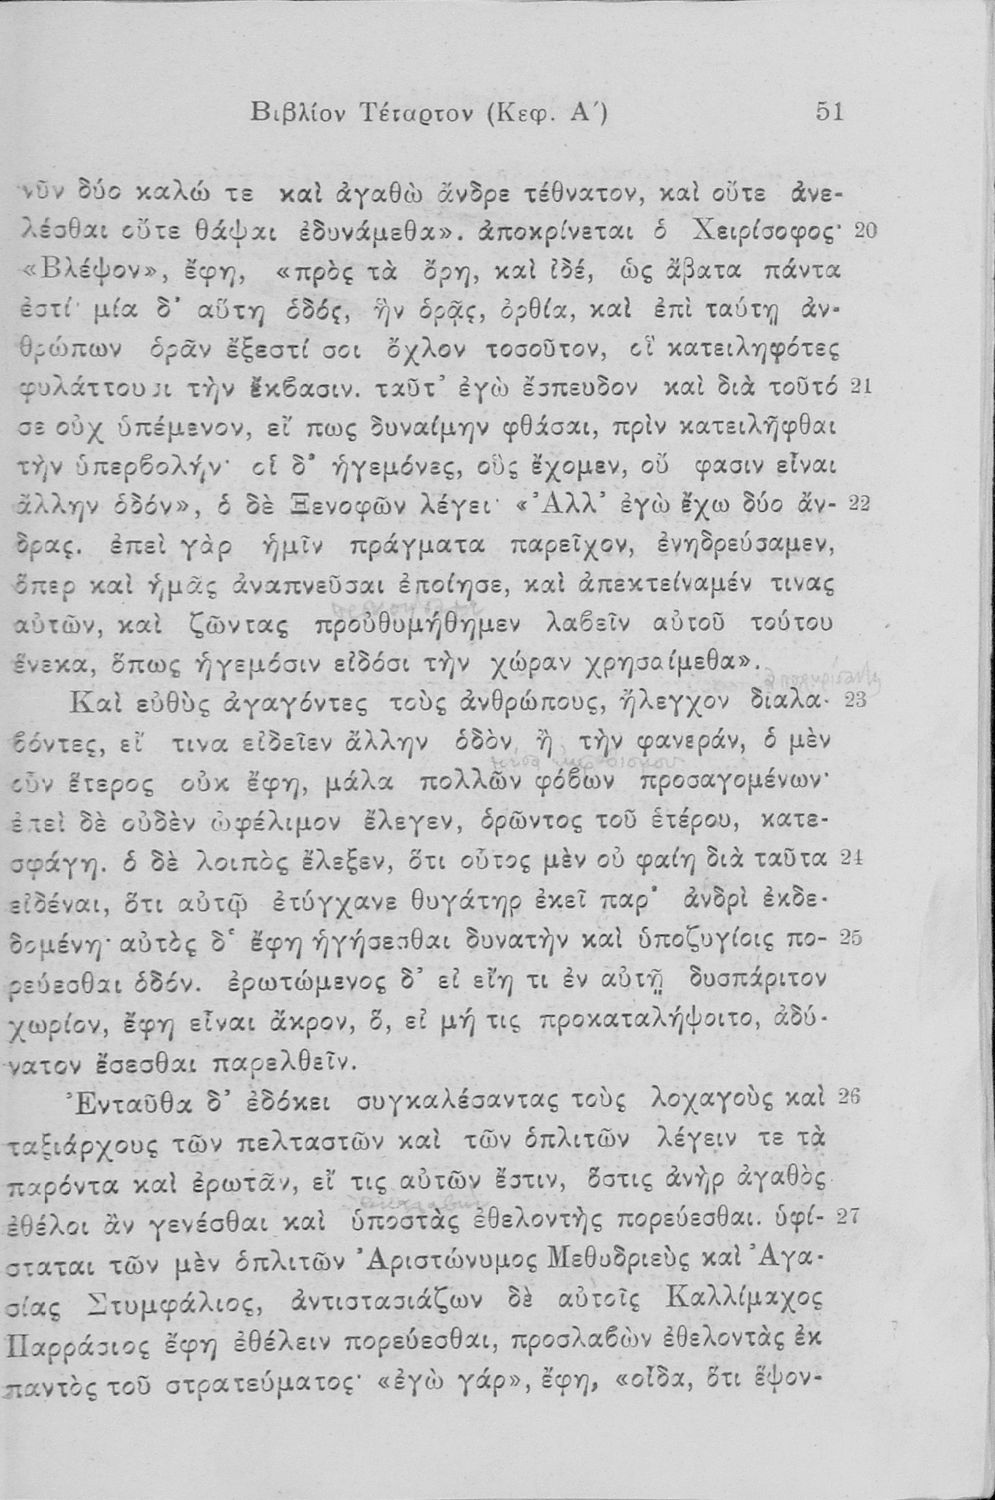 Βιβλίον Τέταρτον (Κεφ. Α΄) 51
νῦν δύο καλώ τε καὶ ἀγαθὼ ἄνδρε τέθνατον, καὶ οὔτε ἀνε-
λέσθαι οὔτε θάψαι ἐδυνάμεθα». ἀποκρίνεται ὁ Χειρίσοφος· 20
«Βλέψον», ἔφη, «πρὸς τὰ ὄρη, καὶ ἰδέ, ὡς ἄβατα πάντα
ἐστί· μία δ' αὕτη ὁδός, ἣν ὁρᾷς, ὀρθία, καὶ ἐπὶ ταύτῃ ἀν-
θρώπων ὁρᾶν ἔξεστί σοι ὄχλον τοσοῦτον, οἳ κατειληφότες
φυλάττουσι τὴν ἔκβασιν. ταῦτ' ἐγὼ ἔσπευδον καὶ διὰ τοῦτό 21
σε οὐχ ὑπέμενον, εἴ πως δυναίμην φθάσαι, πρὶν κατειλῆφθαι
τὴν ὑπερβολήν· οἱ δ' ἡγεμόνες, οὓς ἔχομεν, οὔ φασιν εἶναι
ἄλλην ὁδόν», ὁ δὲ Ξενοφῶν λέγει· «Ἀλλ' ἐγὼ ἔχω δύο ἄν- 22
δρας. ἐπεὶ γὰρ ἡμῖν πράγματα παρεῖχον, ἐνηδρεύσαμεν,
ὅπερ καὶ ἡμᾶς ἀναπνεῦσαι ἐποίησε, καὶ ἀπεκτείναμέν τινας
αὐτῶν, καὶ ζῶντας προὐθυμήθημεν λαβεῖν αὐτοῦ τούτου
ἕνεκα, ὅπως ἡγεμόσιν εἰδόσι τὴν χώραν χρησαίμεθα».
Καὶ εὐθὺς ἀγαγόντες τοὺς ἀνθρώπους, ἤλεγχον διαλα- 23
βόντες, εἴ τινα εἰδεῖεν ἄλλην ὁδὸν ἢ τὴν φανεράν, ὁ μὲν
οὖν ἕτερος οὐκ ἔφη, μάλα πολλῶν φόβων προσαγομένων·
ἐπεὶ δὲ οὐδὲν ὠφέλιμον ἔλεγεν, ὁρῶντος τοῦ ἑτέρου, κατε-
σφάγη. ὁ δὲ λοιπὸς ἔλεξεν, ὅτι οὗτος μὲν οὐ φαίη διὰ ταῦτα 24
εἰδέναι, ὅτι αὐτῷ ἐτύγχανε θυγάτηρ ἐκεῖ παρ' ἀνδρὶ ἐκδε-
δομένη· αὐτὸς δ' ἔφη ἡγήσεσθαι δυνατὴν καὶ ὑποζυγίοις πο- 25
ρεύεσθαι ὁδόν. ἐρωτώμενος δ' εἰ εἴη τι ἐν αὐτῇ δυσπάριτον
χωρίον, ἔφη εἶναι ἄκρον, ὅ, εἰ μή τις προκαταλήψοιτο, ἀδύ-
νατον ἔσεσθαι παρελθεῖν.
Ἐνταῦθα δ' ἐδόκει συγκαλέσαντας τοὺς λοχαγοὺς καὶ 26
ταξιάρχους τῶν πελταστῶν καὶ τῶν ὁπλιτῶν λέγειν τε τὰ
παρόντα καὶ ἐρωτᾶν, εἴ τις αὐτῶν ἔστιν, ὅστις ἀνὴρ ἀγαθὸς
ἐθέλοι ἂν γενέσθαι καὶ ὑποστὰς ἐθελοντὴς πορεύεσθαι. ὑφί- 27
σταται τῶν μὲν ὁπλιτῶν Ἀριστώνυμος Μεθυδριεὺς καὶ Ἀγα-
σίας Στυμφάλιος, ἀντιστασιάζων δὲ αὐτοῖς Καλλίμαχος
Παρράσιος ἔφη ἐθέλειν πορεύεσθαι, προσλαβὼν ἐθελοντὰς ἐκ
παντὸς τοῦ στρατεύματος· «ἐγὼ γάρ», ἔφη, «οἶδα, ὅτι ἕψον-